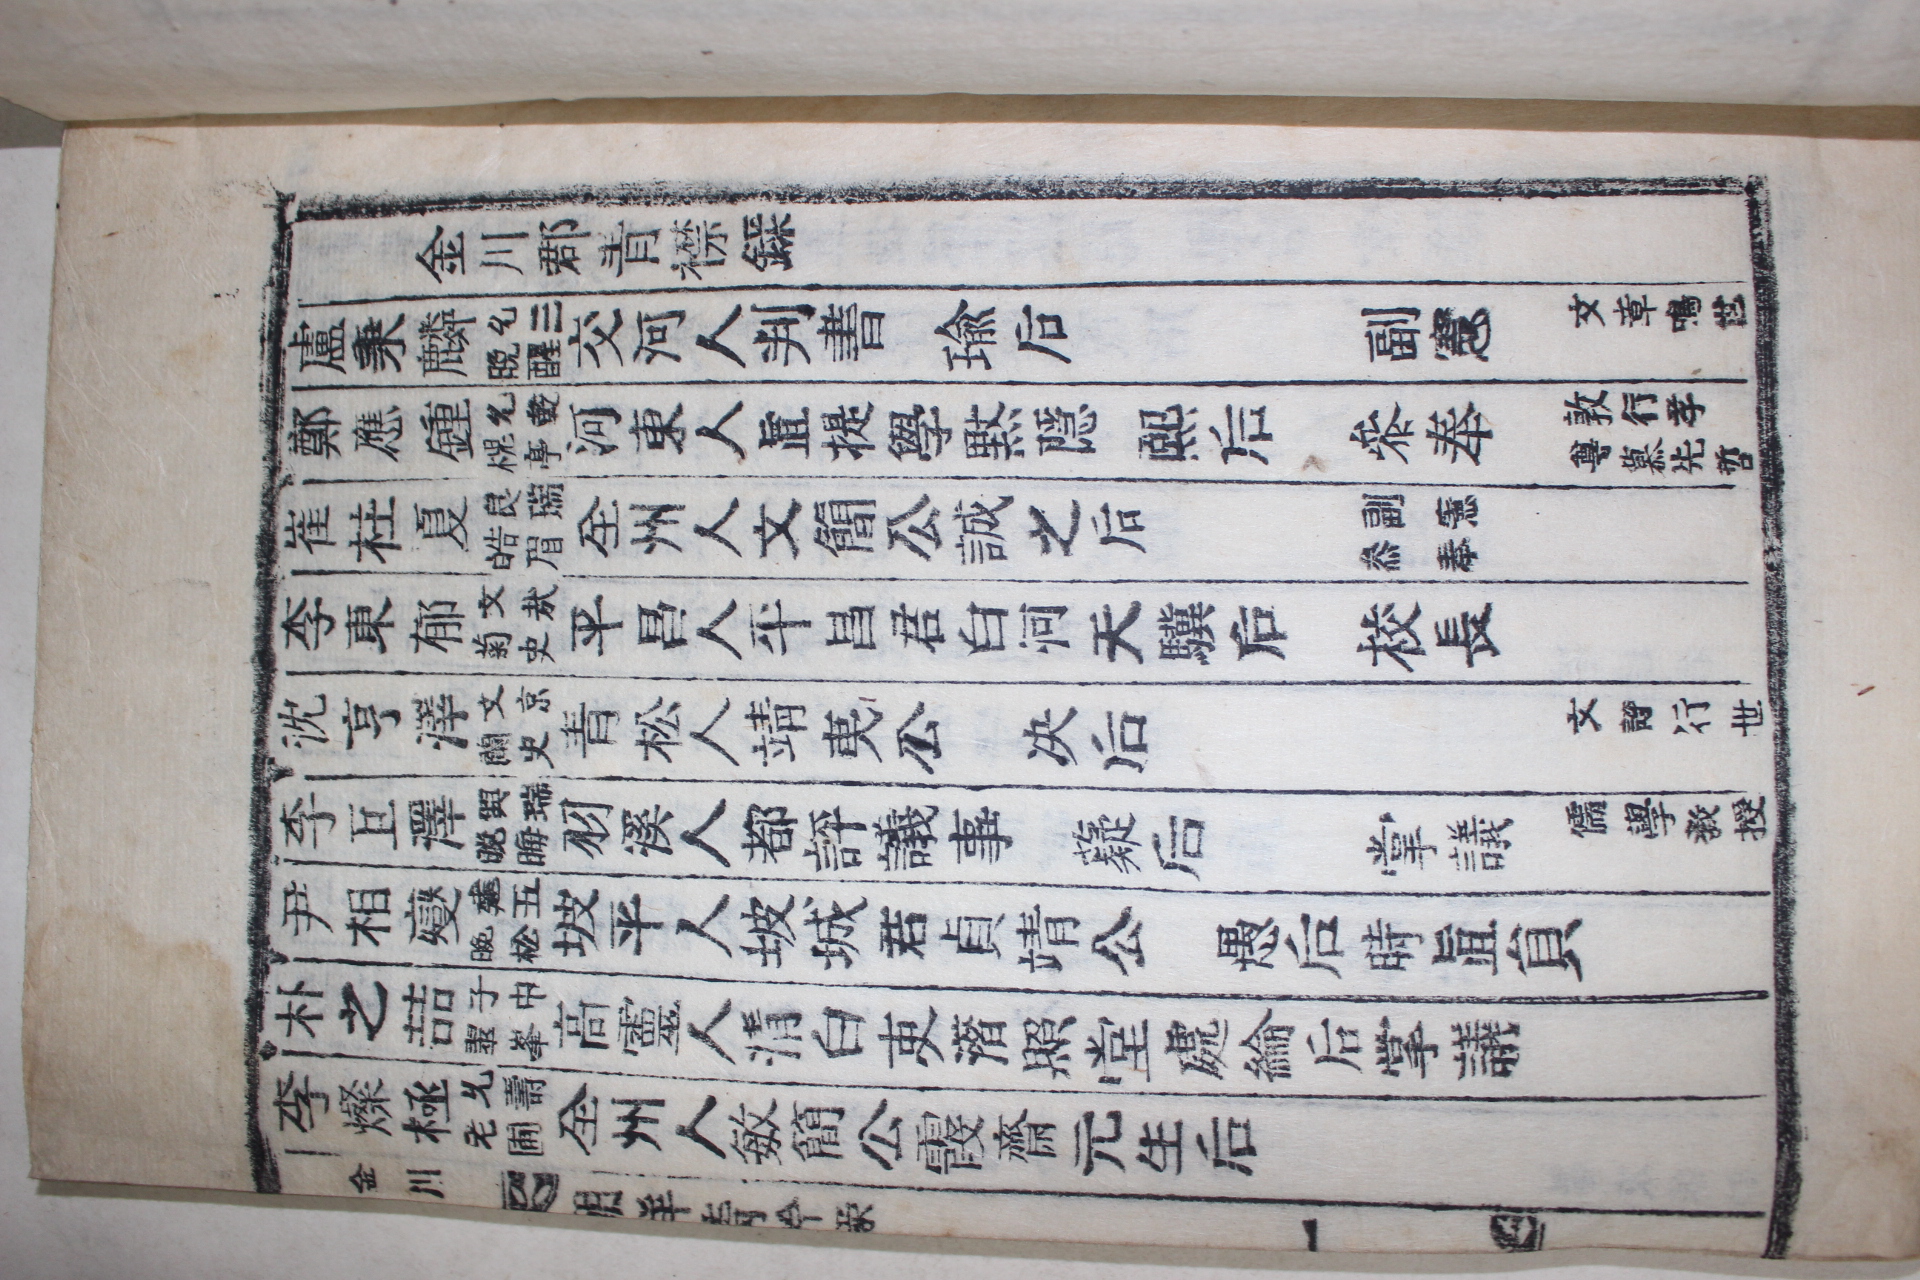 金川郡青襟錄
盧秉麟 允三 晩醒 交河人判書 瑜后 副憲 文章鳴世
鄭應鍾 允乾 楎亭 河東人直提學黙隱 熙后 叅奉 敦行孝 尊慕先哲
崔柱夏 良瑞 皓眉 全州人文簡公誠之后 副憲 叅奉
李東郁 文哉 菊史 平昌人平昌君白河天驥后 校長
沈亨澤 文京 蘭史 青松人靖夷公 决后 文詩行世
李亘澤 興瑞 晩晦 羽溪人都評議事 薿后 掌議 儒學教授
尹相燮 五 晩松 坡平人坡城君貞靖公 愚后時直員
朴之喆 子中 翠峯 高靈人清白吏潛照堂處綸后掌議
李燦極 允壽 老圃 全州人敏簡公霞齋元生后
金川 朝鮮青衿錄 一